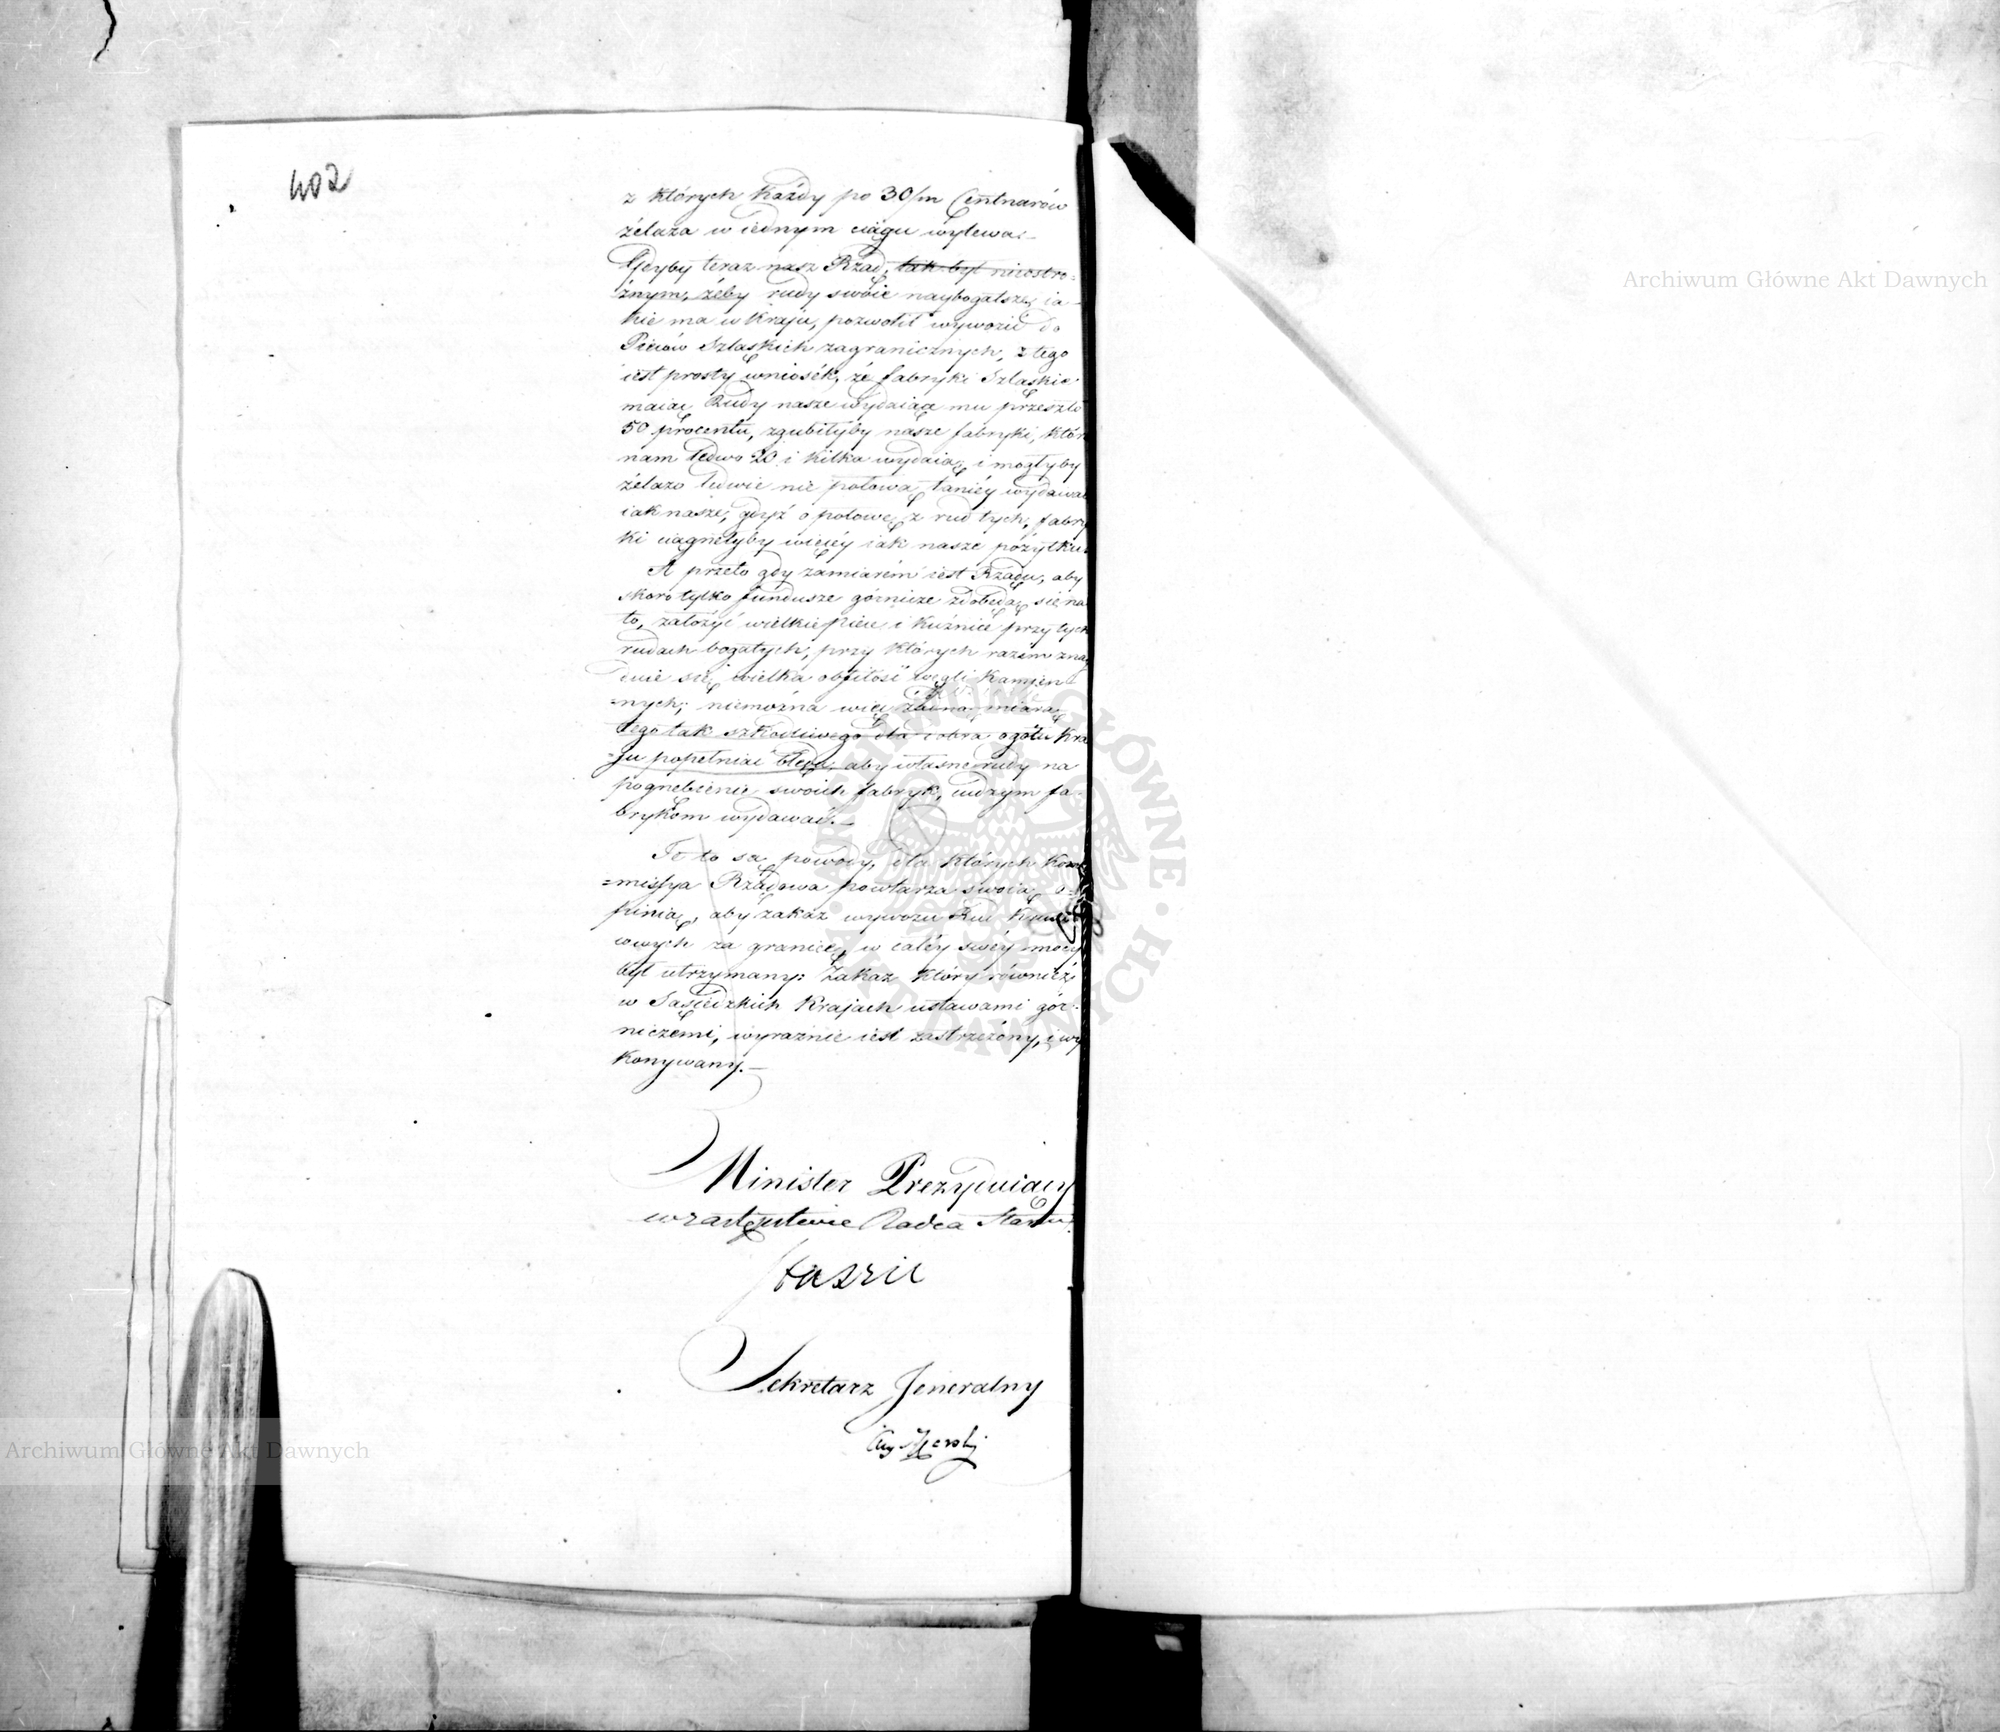 402
z których każdy po 30/m Centnarów
żelaza w iednym ciągu wylewa.
Gdyby teraz nasz Rząd, tak był nieostro=
żnym, żeby rudy swóie naybogatsze, ia
kie ma w kraju, pozwolił wywozić do
Pieców Szląskich zagranicznych, z tego
iest prosty wniosék, że fabryki Szląskie
maiąc Rudy nasze wydaiące mu przeszło
50 procentu, zgubiłyby nasze fabryki, któr
nam ledwo 20 i kilka wydaią, i mogłyby
żelazo ledwie nie połową taniéy wydawa
iak nasze, gdyż o połowę z rud tych, fabry
ki ciągnęłyby więcéy iak nasze pożytku
A przeto gdy zamiarém iest Rządu, aby
skoro tylko fundusze górnicze zdobędą się na
to, założyć wielkie piece i kuźnice przy tych
rudach bogatych, przy których razem zna
duie się wielka obfitość węgli kamien
=nych; niemożna więc żadną miarą
tego tak szkodliwego dla dobra ogółu Kra
=ju popełniać błędu, aby własne rudy na
pognębienie swoich fabryk, cudzym fa=
brykom wydawać.
Te to są powody, dla których Kom
=missya Rządowa powtarza swoią o=
pinią, aby zakaz wywozu Rud
wych za granicę, w całéy swéy mocy
był utrzymany: Zakaz który również
w Sąsiedzkich Krajach ustawami gór=
niczemi, wyraźnie iest zastrzeżony, i wy
konywany.
Minister Prezyduiący
w zastępstwie Radca Stanu
Staszic
Sekretarz Jeneralny
Archiwum Główne Akt Dawnych
Archiwum Główne Akt Dawnych
ARCHIWUM GŁÓWNE AKT DAWNYCH